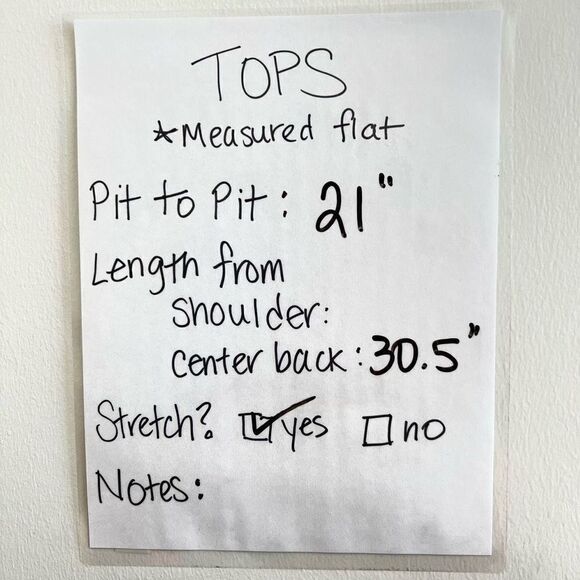 TOPS
*Measured flat
Pit to Pit: 21"
Length from
shoulder:
center back: 30.5"
Stretch? ☑ yes ☐ no
Notes: